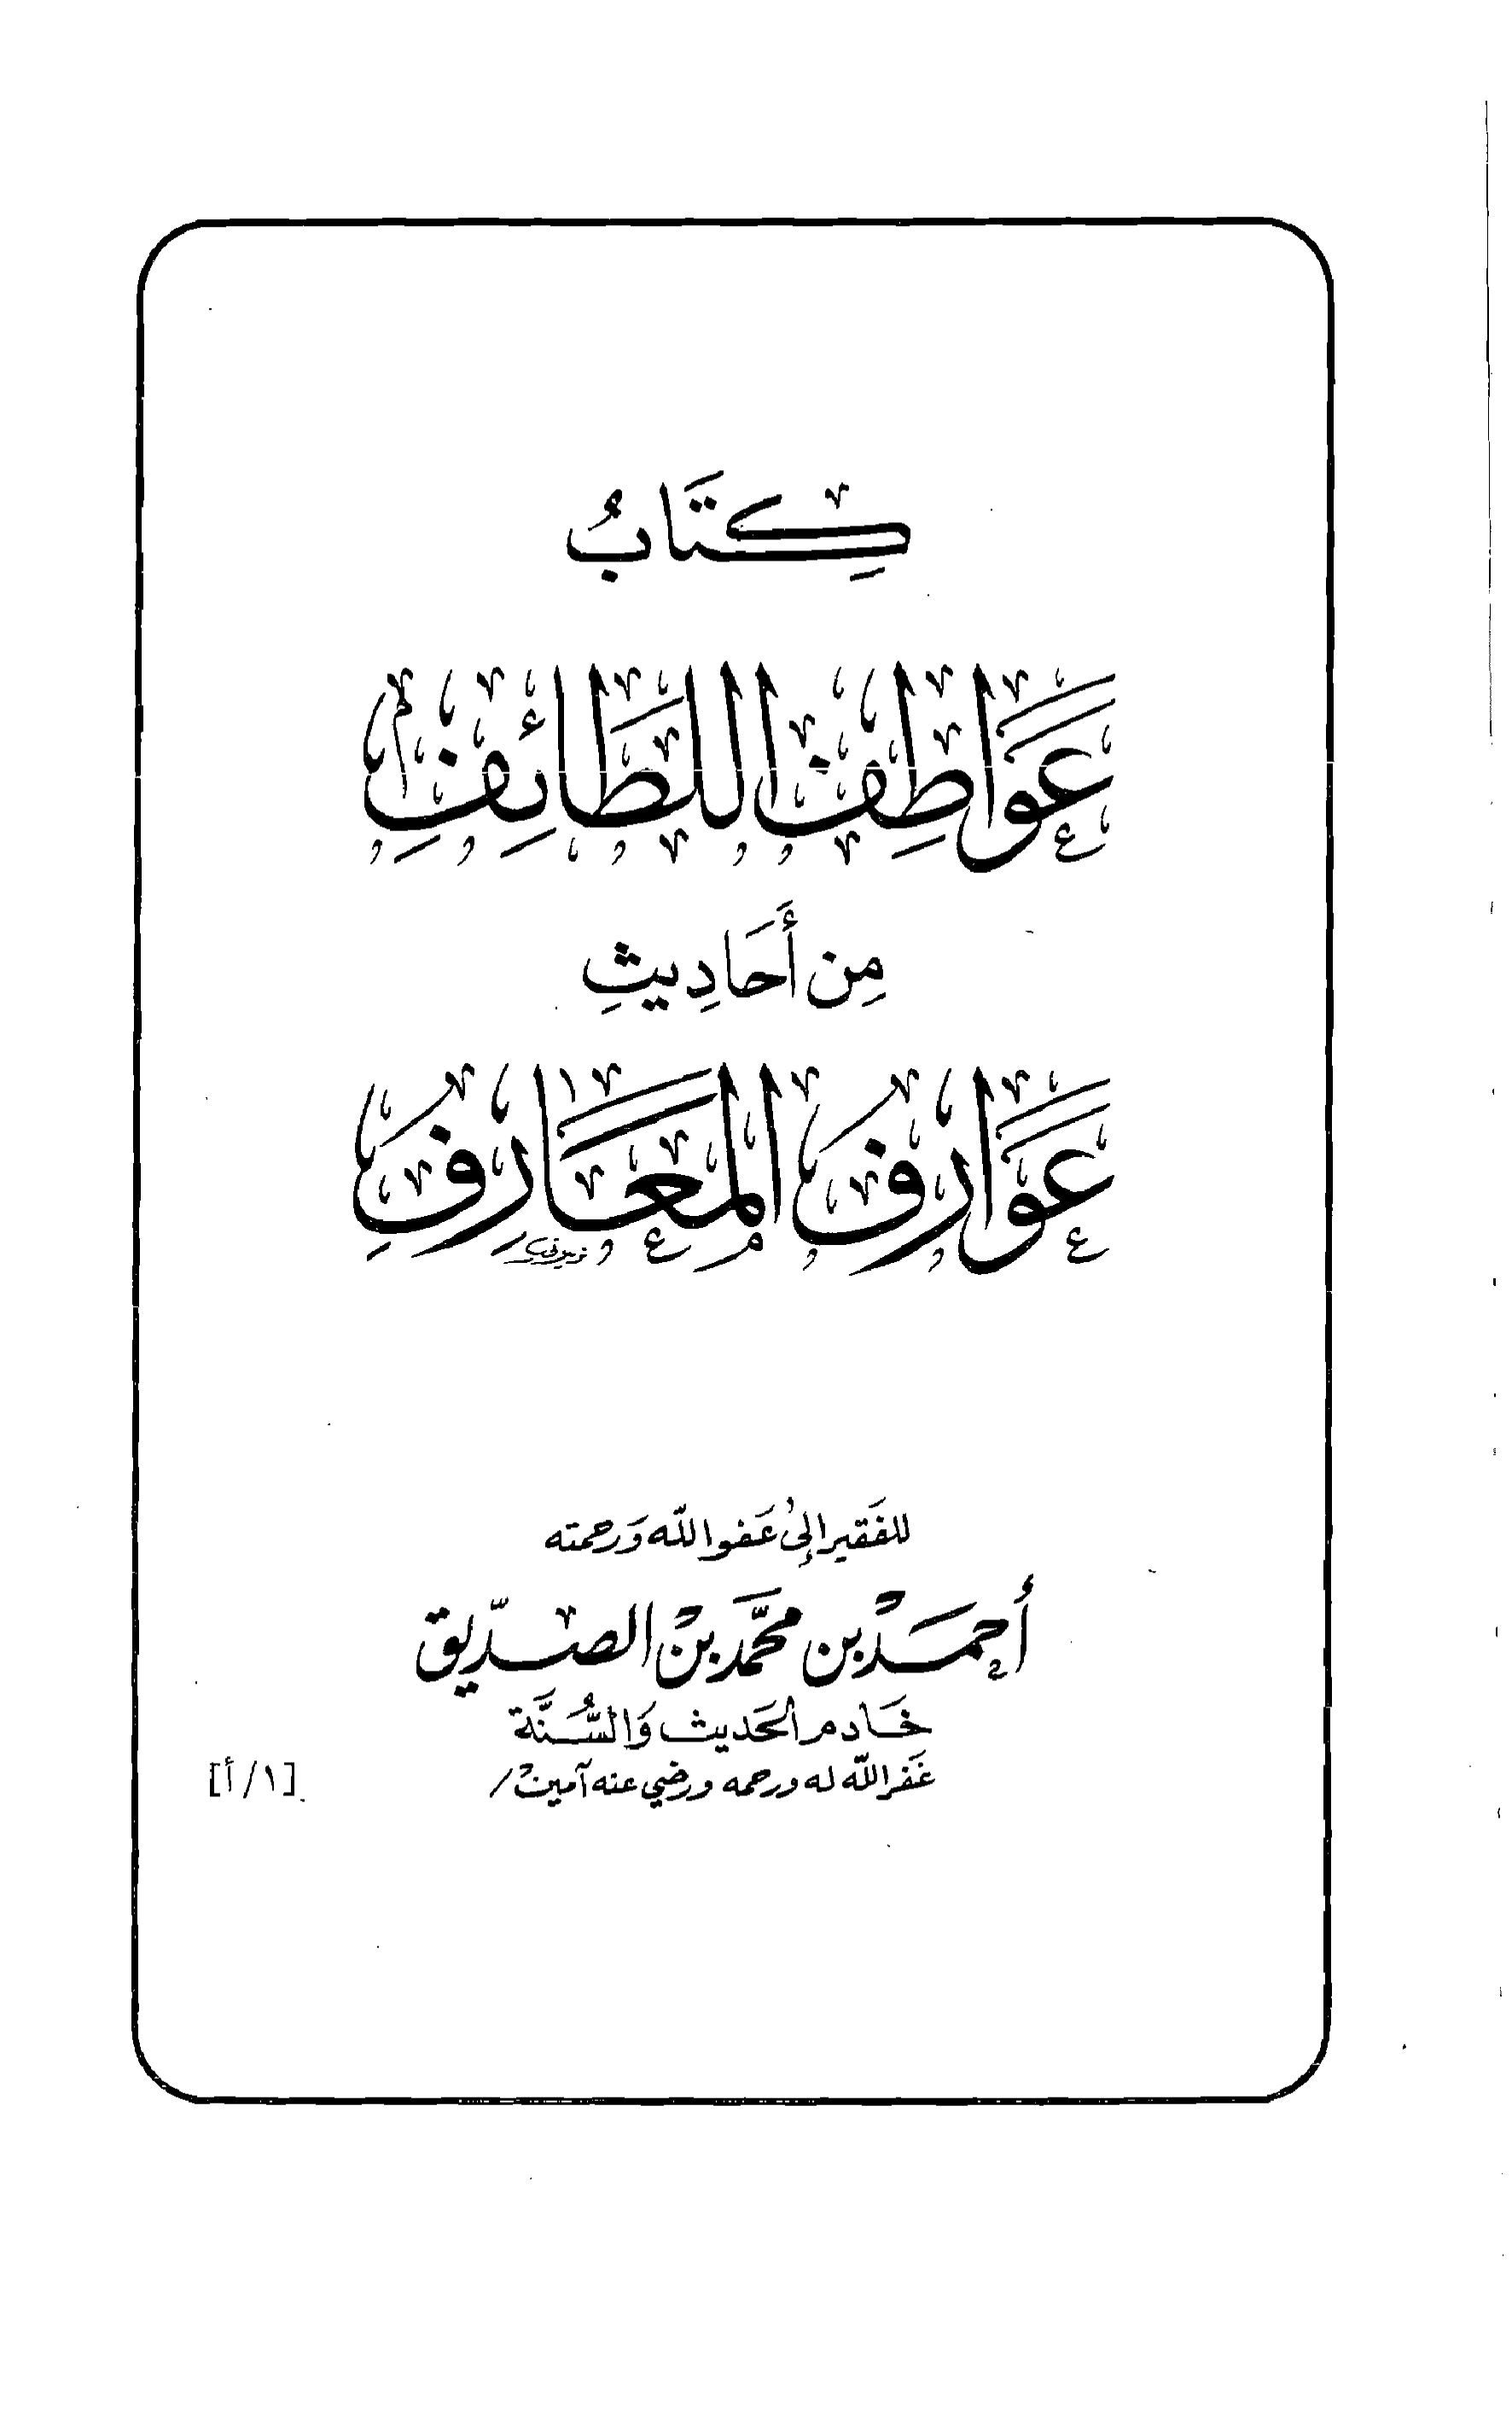 كِتَابُ
عَوَاطِفِ اللَّطَائِفِ
مِن أَحَادِيثِ
عَوَارِفِ المَعَارِفِ
للفَقير إلى عَفو الله وَرحمته
أحمَد بن محمَّد بن الصدّيق
خَادم الحَديث وَالسُّنَّة
غَفر الله له ورحمه ورضي عنه آمين /
[١/أ]